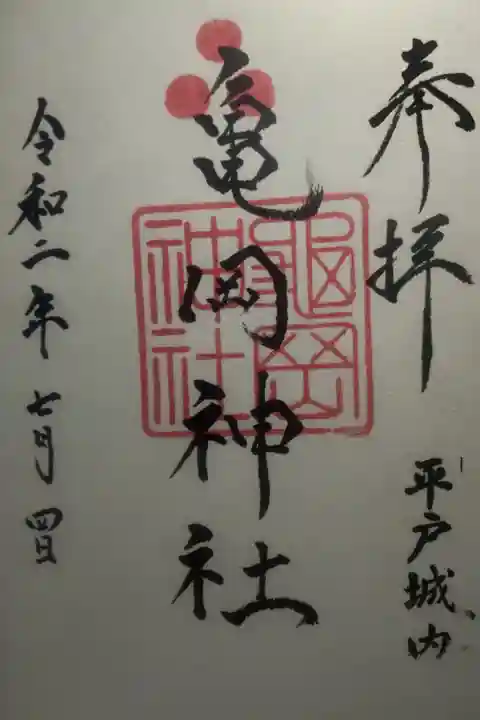 奉拝
平戸城内
亀岡神社
龜岡神社
令和二年七月四日